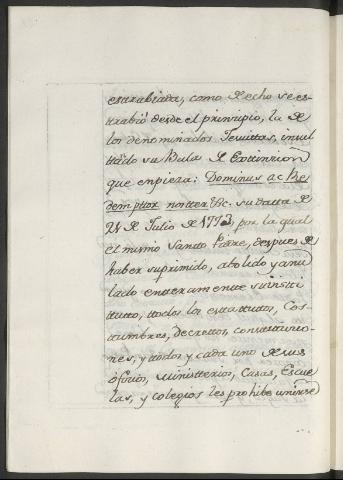 extrabiada, como de echo se es-
trabió desde el prinzipio, la de
los denominados Jesuittas, insul
ttando su Bula de Exttinzion
que enpieza: Dominus ac Re
demptor nostter &c. su datta de
21 de Julio de 1773, por la qual
el mismo Santto Padre, despues de
haber suprimido, abolido y anu
lado entteramentte su instti
ttutto, ttodos los estattutos, Cos-
tumbres, decrettos, constituzio-
nes, y ttodos y cada uno de sus
ofizios, ministterios, Casas, Escue
las, y colegios les prohibe unirse